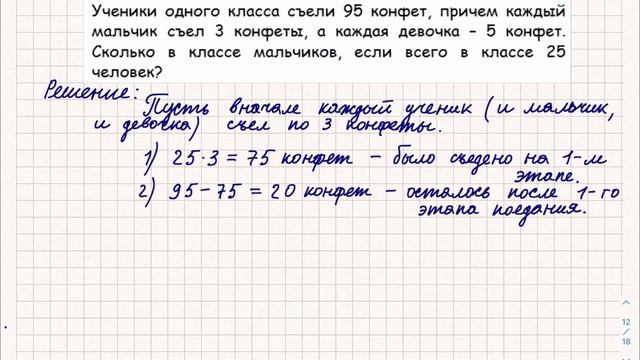 Ученики одного класса съели 95 конфет, причем каждый
мальчик съел 3 конфеты, а каждая девочка – 5 конфет.
Сколько в классе мальчиков, если всего в классе 25
человек?
Решение:
Пусть вначале каждый ученик (и мальчик,
и девочка) съел по 3 конфеты.
1) 25·3 = 75 конфет – было съедено на 1-м
этапе.
2) 95-75 = 20 конфет – осталось после 1-го
этапа поедания.
12
/
18